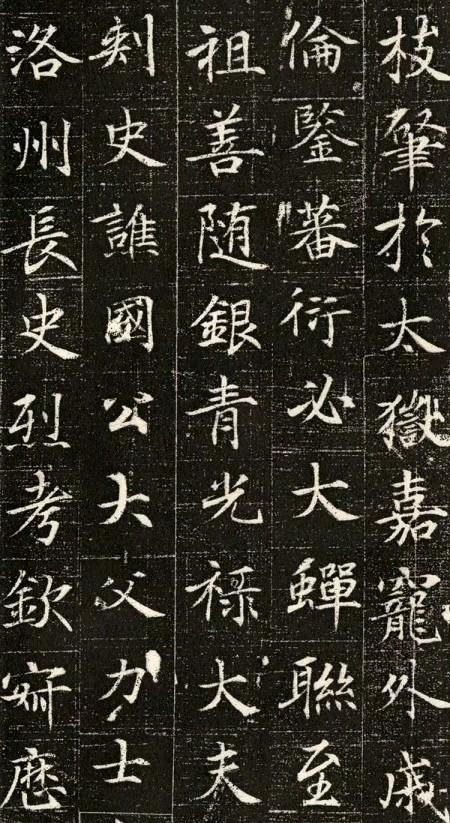 枝肇於太嶽嘉寵外戚
倫鑒蕃衍必大蟬聯至
祖善随銀青光禄大夫
刾史譙國公大父力士
洛州長史烈考欽寂歷